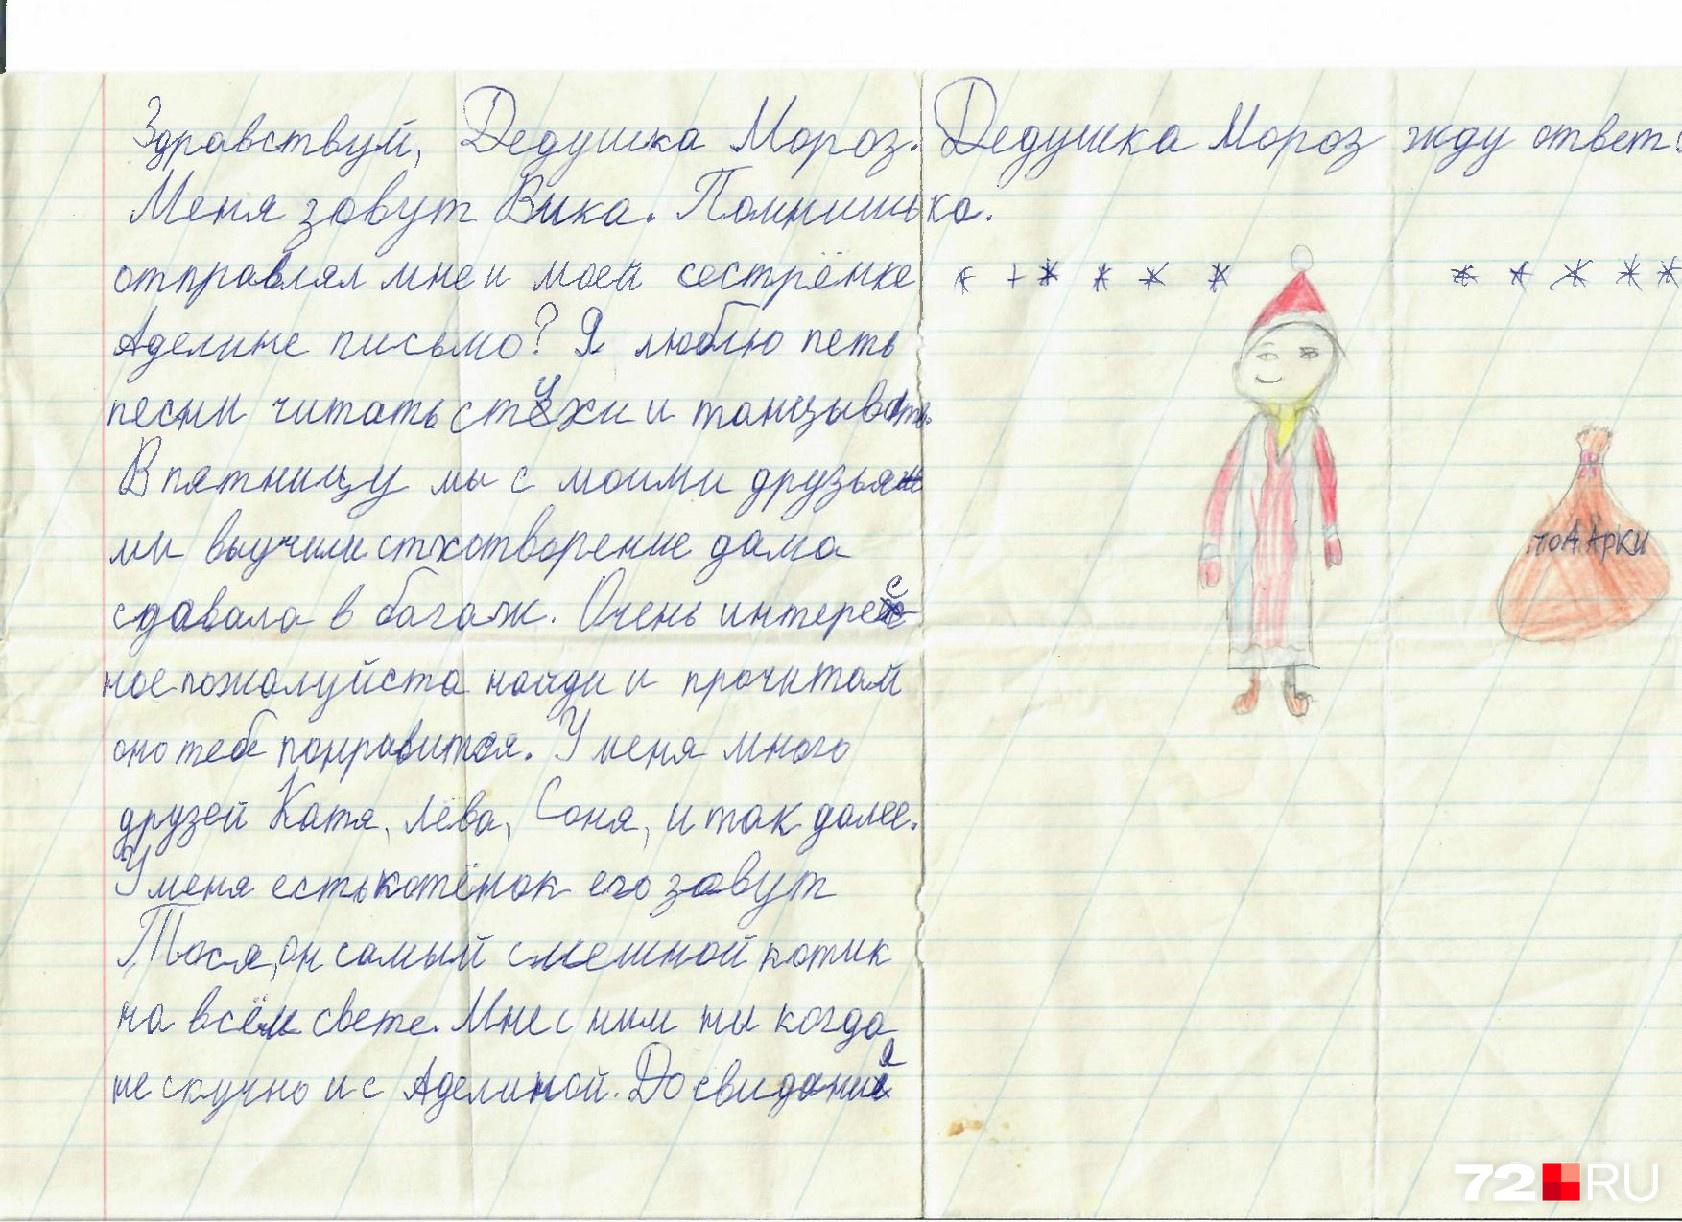 Здравствуй, Дедушка Мороз.
Меня зовут Вика. Помнишь
отправлял мне и моей сестрёнке
Аделине письмо? Я люблю петь
песни читать стухи и танцывать.
В пятницу мы с моими друзья
ми выучили стхотворение дама
сдавала в багаж. Очень интерес
ное пожалуйста найди и прочитай
оно тебе понравится. У меня много
друзей Катя, Лёва, Соня, и так далее.
У меня есть котёнок его зовут
Тося, он самый смешной котик
на всём свете. Мне с ним ни когда
не скучно и с Аделиной. До свидания
Дедушка Мороз жду ответа
ка.
поДАрки
72.RU